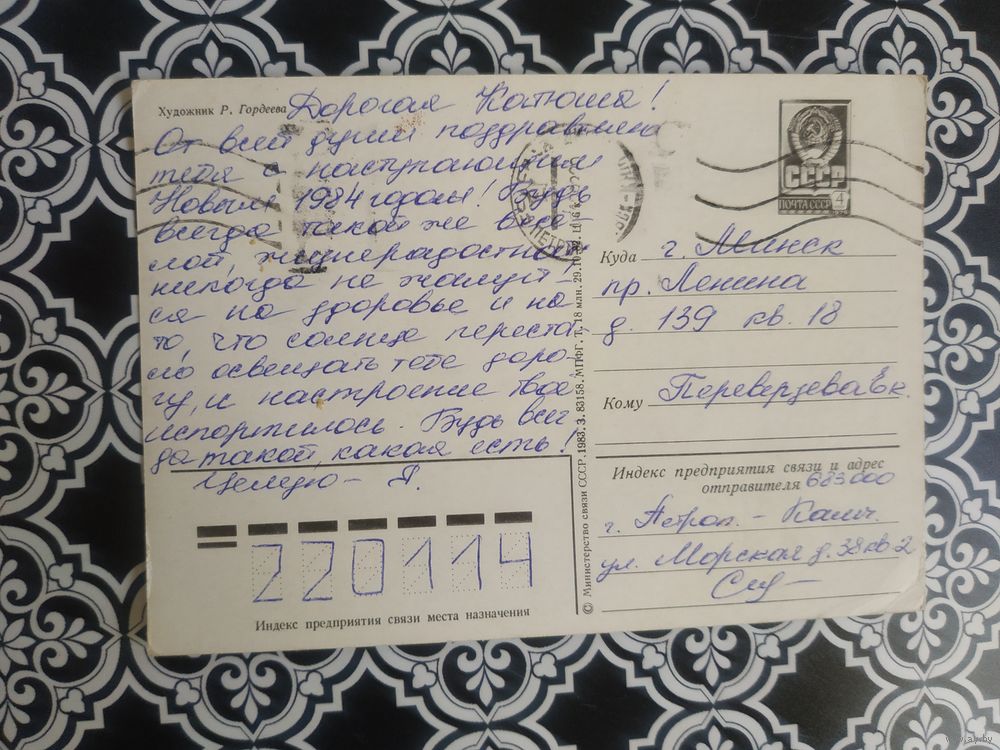 Художник Р. Гордеева
Дорогая Катюша!
От всей души поздравляю
тебя с наступающим
Новым 1984 годом! Будь
всегда такой же весё-
лой, жизнерадостной,
никогда не жалуй-
ся на здоровье и на
то, что солнце переста-
ло освещать тебе доро-
гу, и настроение твоё
испортилось. Будь всег
да такой, какая есть!
Целую – Я.
220114
Индекс предприятия связи места назначения
© Министерство связи СССР. 1983. З. 83158. МПФГ. Т. 18 млн. 29.10.82. Ц.
СССР
ПОЧТА СССР 4
Куда г. Минск
пр. Ленина
д. 139 кв. 18
Кому Переверзева Ек.
Индекс предприятия связи и адрес
отправителя 683000
г. Петроп. – Камч.
ул. Морская д. 38 кв 2
www.ay.by